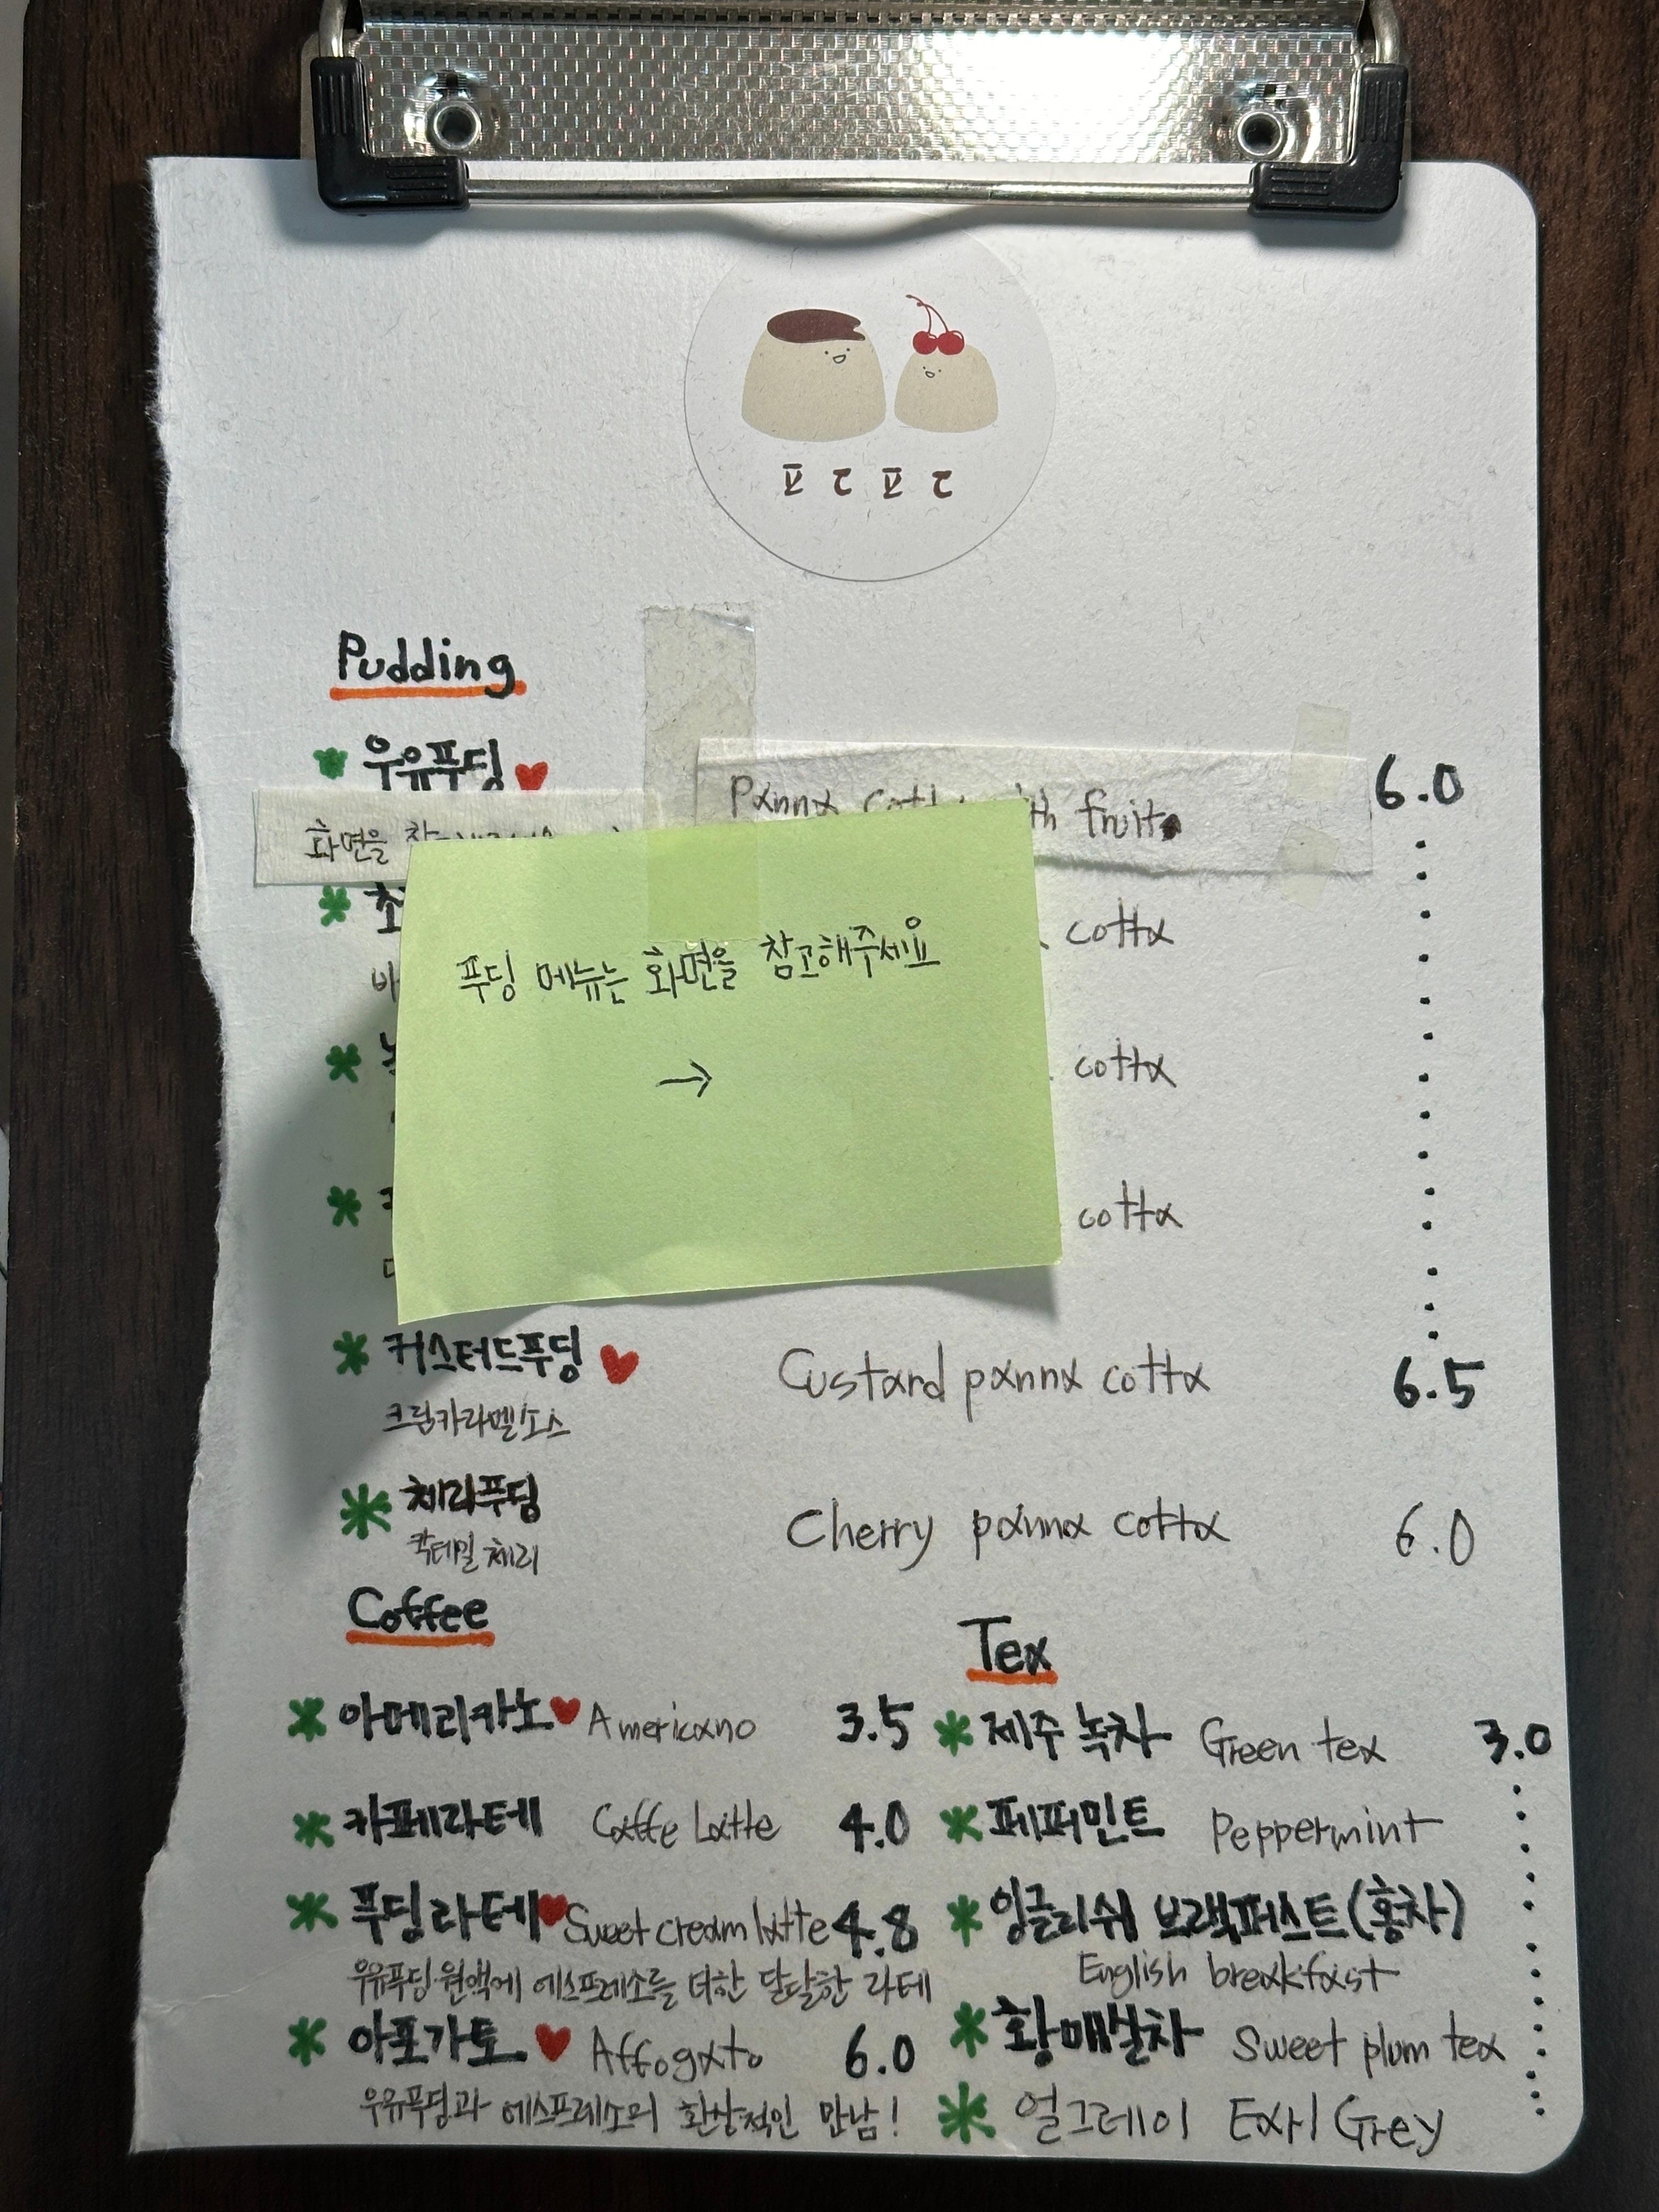 푸딩 메뉴는 화면을 참고해주세요
→
Pudding
우유푸딩 6.0
화면을
Panna with fruit
초
cotta
cotta
cotta
커스터드푸딩 Custard panna cotta 6.5
크림카라멜소스
체리푸딩 Cherry panna cotta 6.0
칵테일 체리
Coffee
아메리카노 Americano 3.5
카페라테 Caffe Latte 4.0
푸딩라테 Sweet cream latte 4.8
우유푸딩 원액에 에스프레소를 더한 달달한 라테
아포가토 Affogato 6.0
우유푸딩과 에스프레소의 환상적인 만남!
Tea
제주 녹차 Green tea 3.0
페퍼민트 Peppermint
잉글리쉬 브랙퍼스트(홍차)
English breakfast
황매실차 Sweet plum tea
얼그레이 Earl Grey